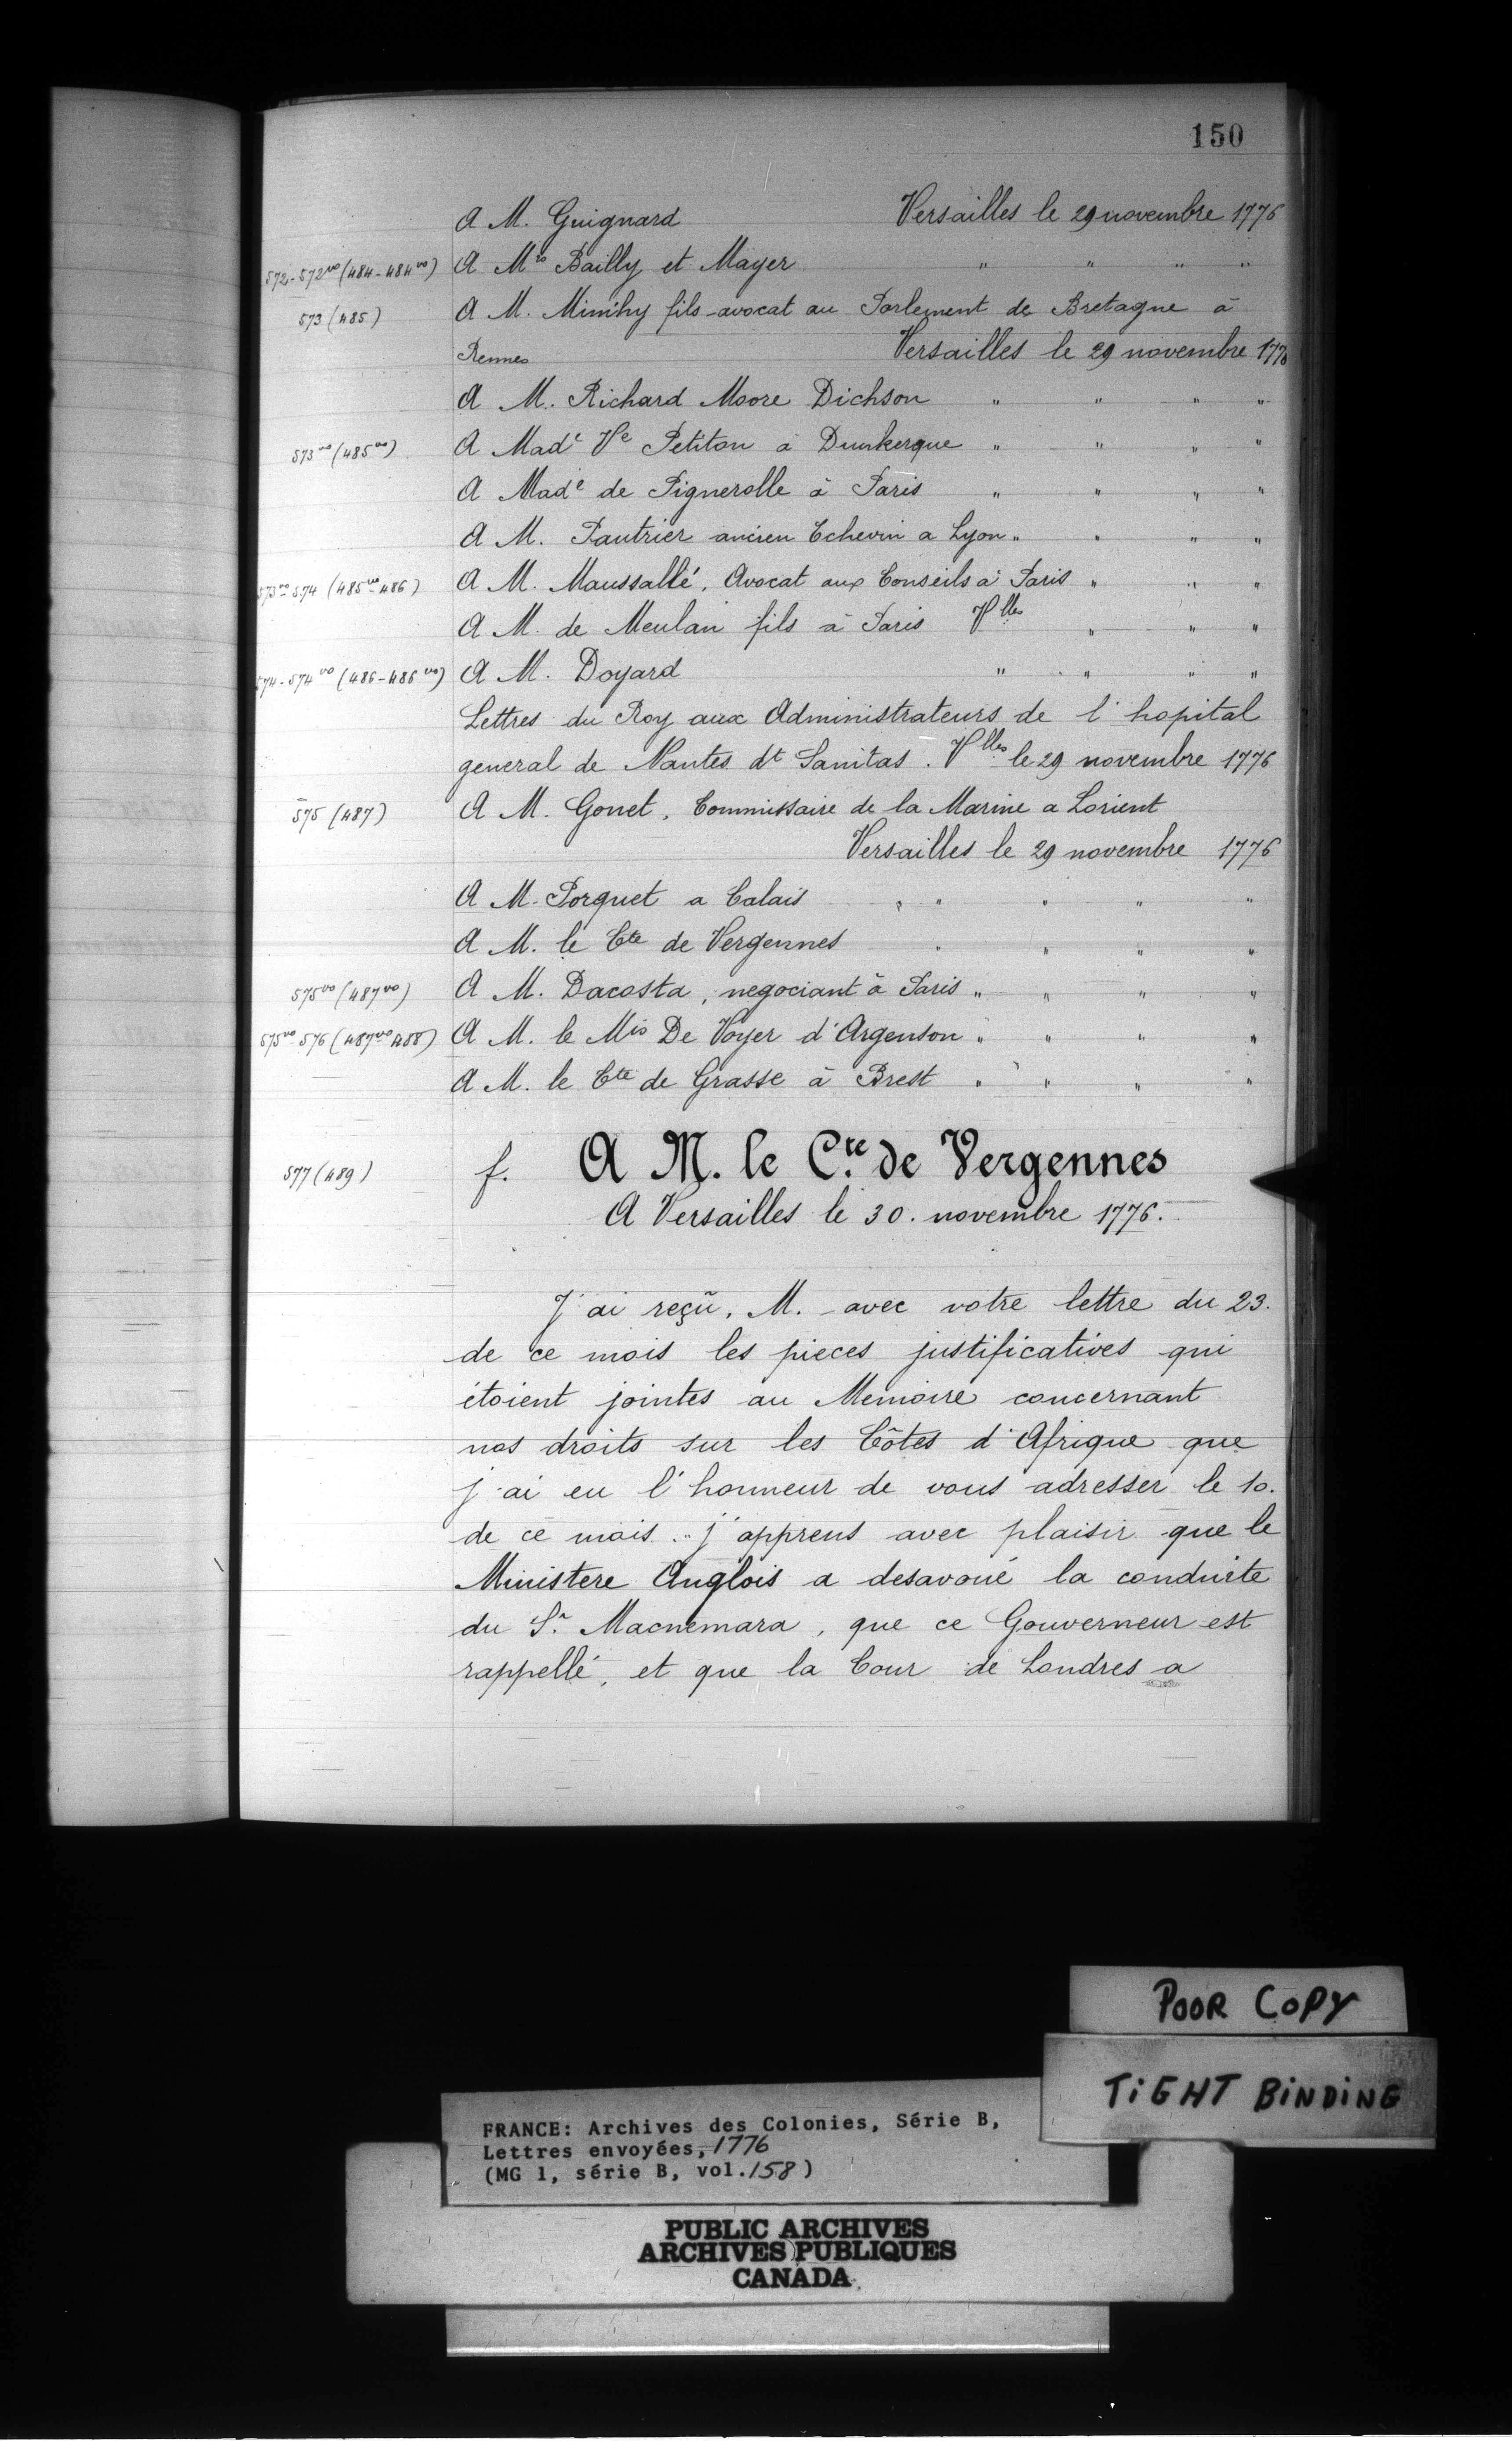 150
A M. Guignard Versailles le 29 novembre 1776
572-572vo (484-484vo) A Mrs Bailly et Mayer " " " "
573 (485) A M. Minihy fils avocat au Parlement de Bretagne à
Rennes Versailles le 29 novembre 1776
A M. Richard Moore Dichson " " " "
573vo (485vo) A Made Ve Petiton à Dunkerque " " " "
A Made de Pignerolle à Paris " " " "
A M. Pautrier ancien Echevin a Lyon " " " "
573vo-574 (485vo-486) A M. Maussallé, Avocat aux Conseils à Paris " " "
A M. de Meulan fils à Paris Vlles " " "
574-574vo (486-486vo) A M. Doyard " " " "
Lettres du Roy aux Administrateurs de l'hopital
general de Nantes dt Sanitas. Vlles le 29 novembre 1776
575 (487) A M. Gonet, Commissaire de la Marine a Lorient
Versailles le 29 novembre 1776
A M. Porquet a Calais " " " " "
A M. le Cte de Vergennes " " " "
575vo (487vo) A M. Dacosta, negociant à Paris " " " "
575vo-576 (487vo-488) A M. le Mis De Voyer d'Argenson " " " "
A M. le Cte de Grasse à Brest " " " "
577 (489) f. A M. le Cte de Vergennes
A Versailles le 30. novembre 1776.
J'ai reçû, M. avec votre lettre du 23.
de ce mois les pieces justificatives qui
étoient jointes au Memoire concernant
nos droits sur les Côtes d'Afrique que
j'ai eu l'honneur de vous adresser le 10.
de ce mois. j'apprens avec plaisir que le
Ministere Anglois a desavoué la conduite
du Sr. Macnemara, que ce Gouverneur est
rappellé, et que la Cour de Londres a
POOR COPY
TIGHT BINDING
FRANCE: Archives des Colonies, Série B,
Lettres envoyées, 1776
(MG 1, série B, vol. 158)
PUBLIC ARCHIVES
ARCHIVES PUBLIQUES
CANADA